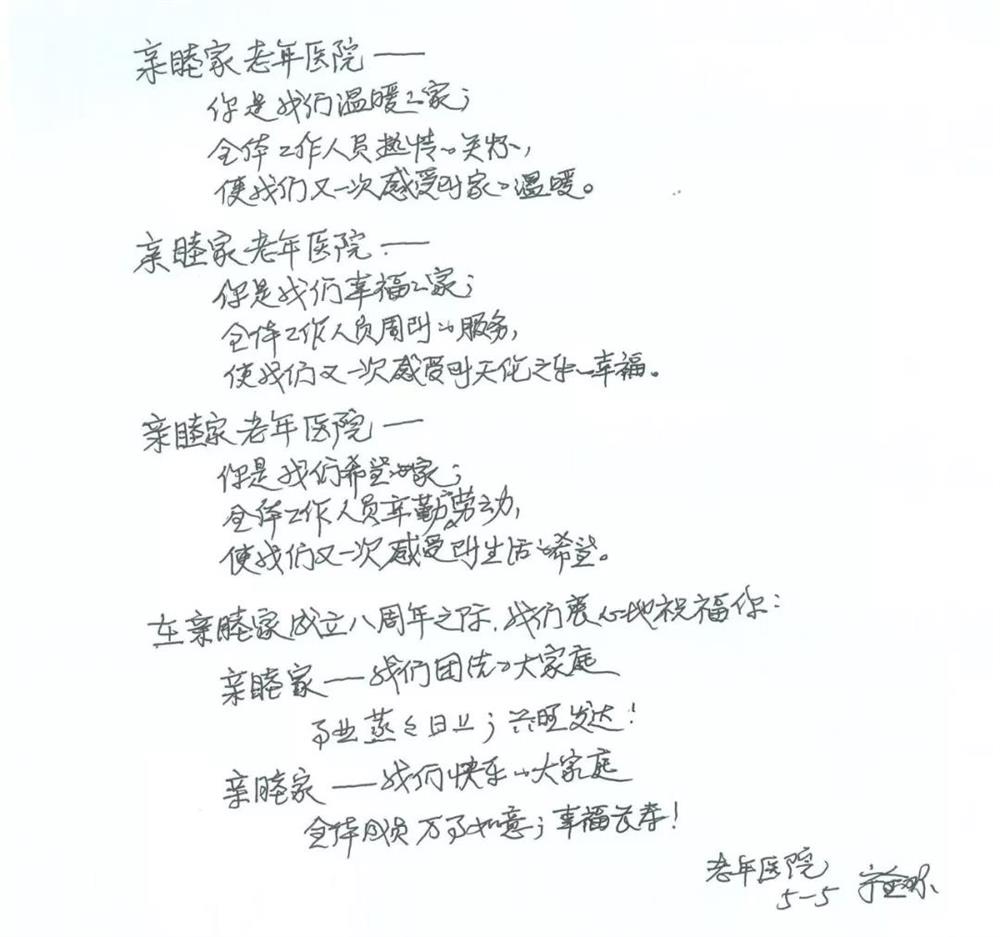 亲睦家老年医院——
你是我们温暖的家；
全体工作人员热情的关怀，
使我们又一次感受到家的温暖。
亲睦家老年医院——
你是我们幸福的家；
全体工作人员周到的服务，
使我们又一次感受到天伦之乐的幸福。
亲睦家老年医院——
你是我们希望的家；
全体工作人员辛勤劳动，
使我们又一次感受到生活的希望。
在亲睦家成立八周年之际，我们衷心地祝福你：
亲睦家——我们团结的大家庭
事业蒸蒸日上；兴旺发达！
亲睦家——我们快乐的大家庭
全体成员万事如意；幸福长寿！
老年医院
5-5